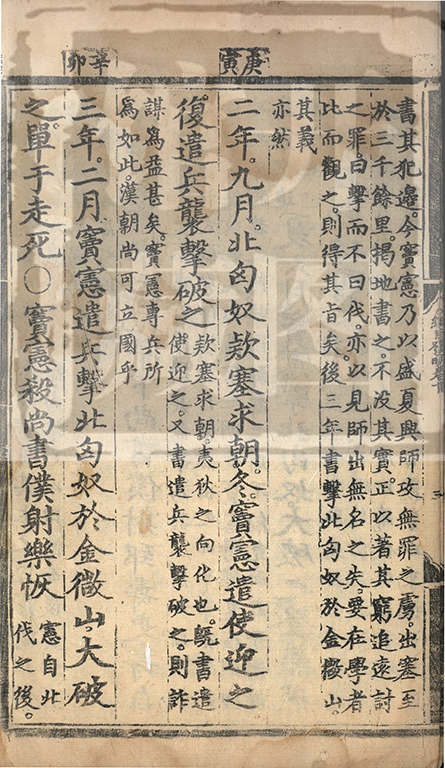 庚寅
辛卯
書其犯邊。今竇憲乃以盛夏興師攻無罪之虜。出塞至
於三千餘里。揭地書之。不没其實。正以著其窮追遠討
之罪。曰擊而不曰伐。亦以見師出無名之失。要在學者
比而觀之。則得其旨矣。後三年書擊北匈奴於金微山。
其義
亦然
二年。九月。北匈奴欵塞求朝。冬。竇憲遣使迎之
復遣兵襲擊破之 欵塞求朝。夷狄之向化也。旣書遣
使迎之。又書遣兵襲擊破之。則詐
謀爲益甚矣。竇憲專兵所
爲如此。漢朝尚可立國乎
三年。二月。竇憲遣兵擊北匈奴於金微山。大破
之。單于走死○竇憲殺尚書僕射樂恢 憲自北
伐之後。